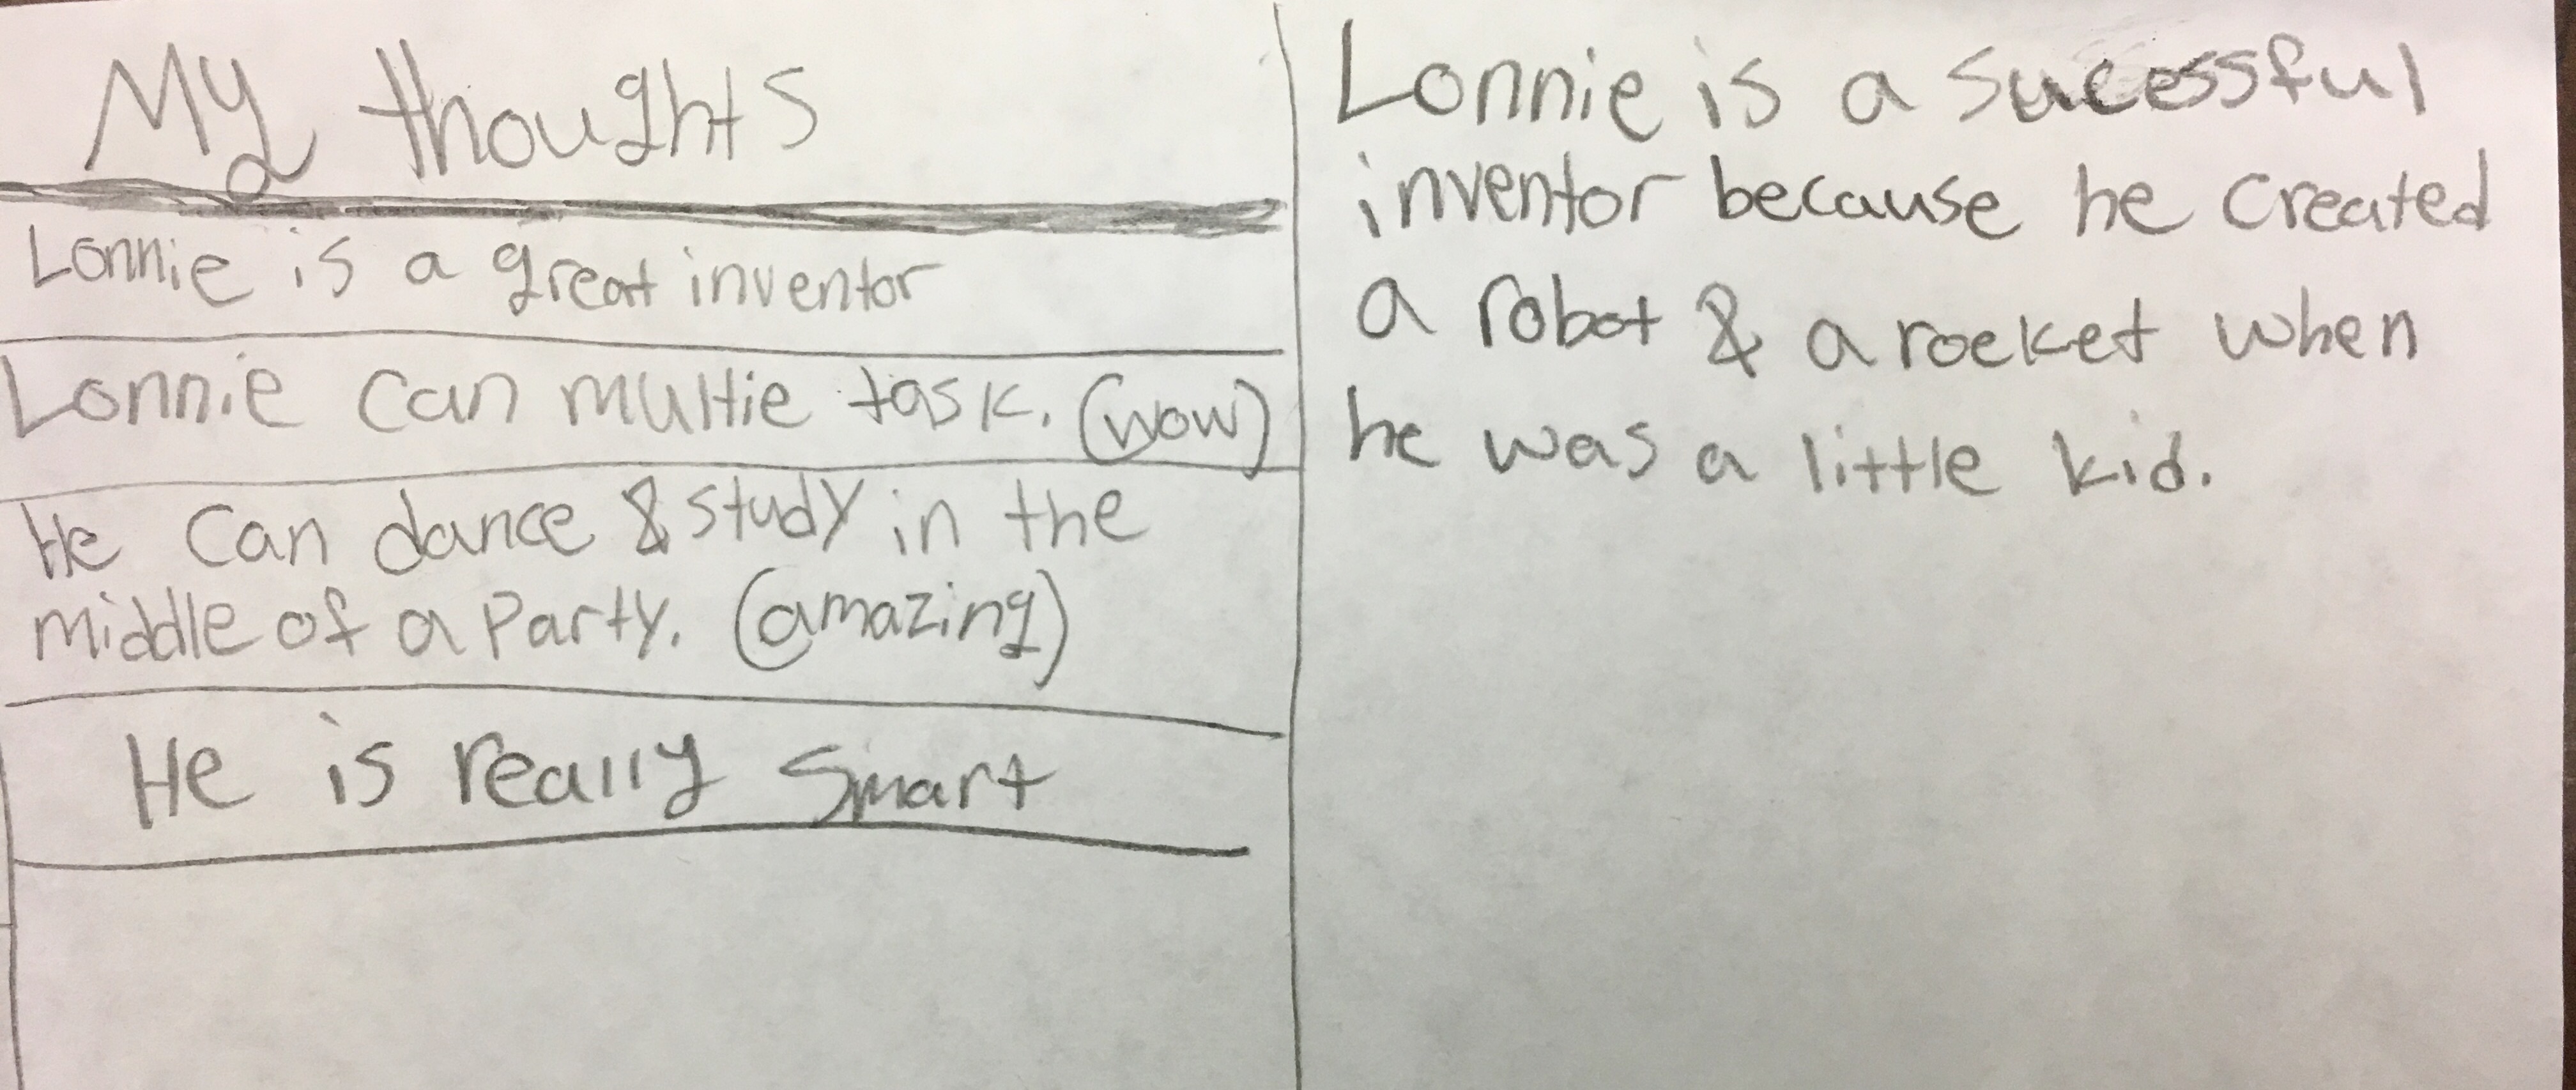 My thoughts
Lonnie is a great inventor
Lonnie can multie task. (wow)
He can dance & study in the
middle of a Party. (amazing)
He is really smart
Lonnie is a sucessful
inventor because he created
a robot & a rocket when
he was a little kid.